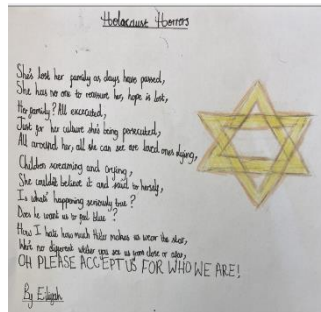 Holocaust Horrors
She's lost her family as days have passed,
She has no one to reassure her, hope is lost,
Her family? All excecuted,
Just for her culture she's being persecuted,
All around her, all she can see are loved ones dying,
Children screaming and crying,
She couldn't believe it and said to herself,
Is what's happening seriously true?
Does he want us to feel blue"?
How I hate how much Hitler makes us wear the star,
We're no different wether you see us from close or afar,
OH PLEASE ACCEPT US FOR WHO WE ARE!
By Eiliyah